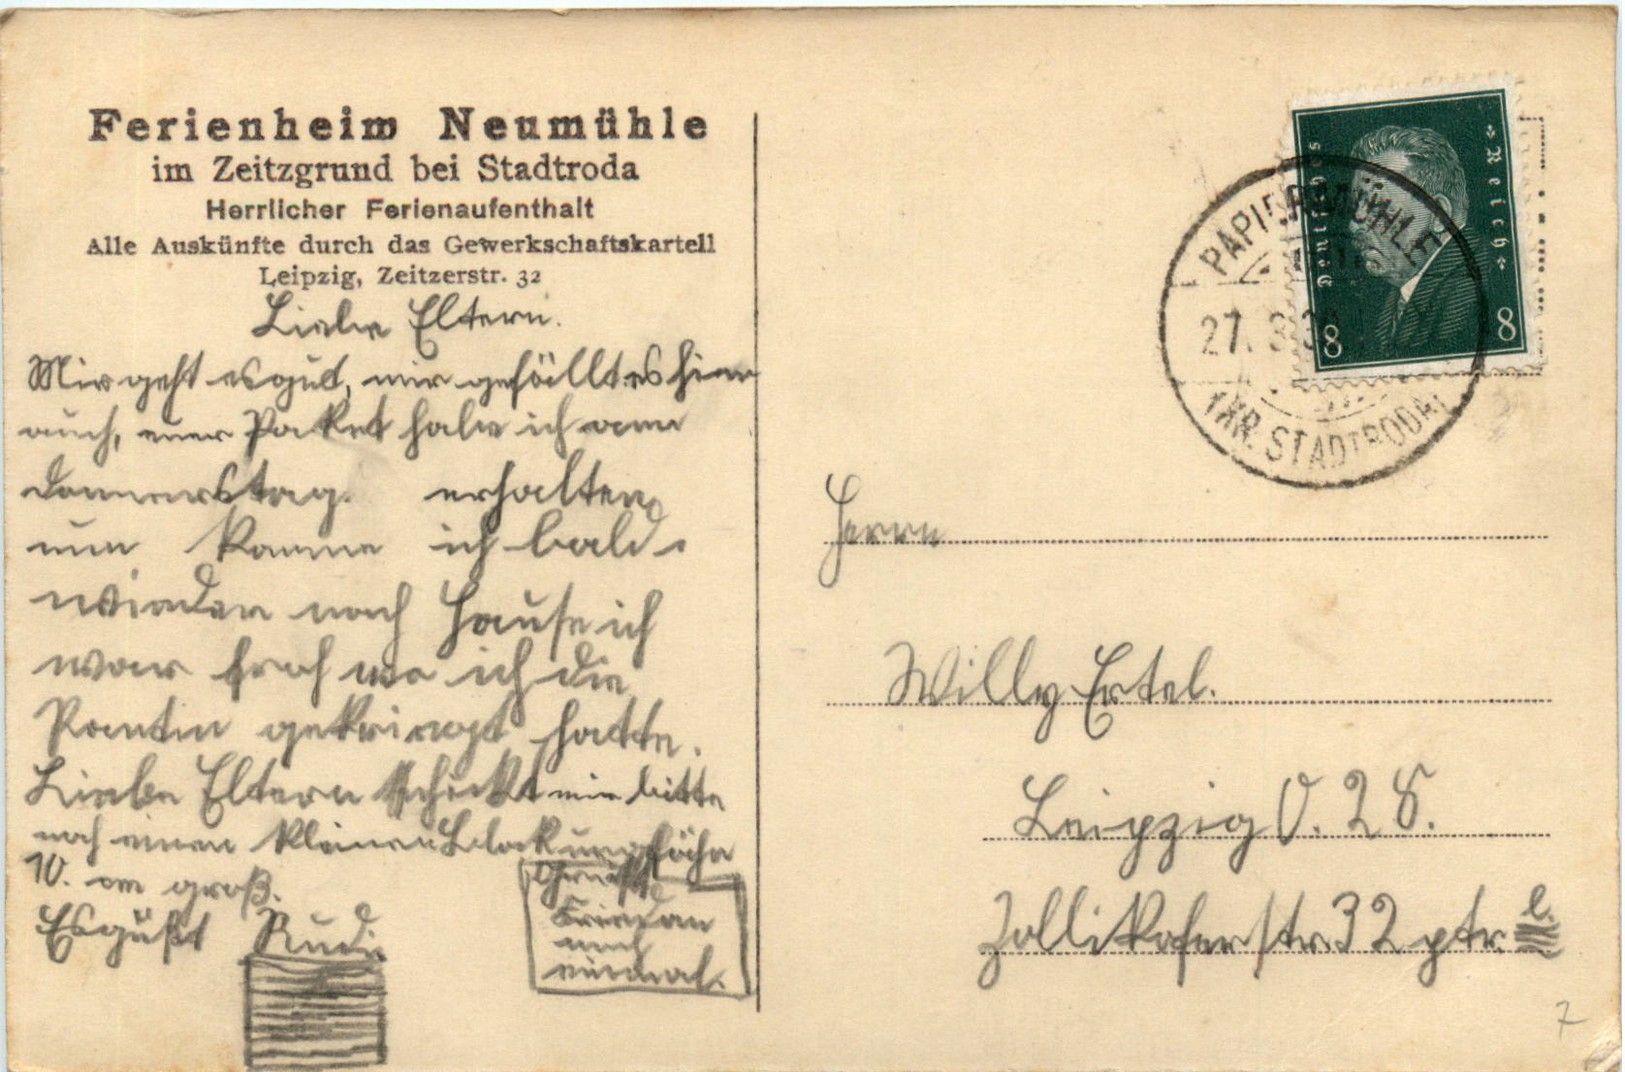 Ferienheim Neumühle
im Zeitzgrund bei Stadtroda
Herrlicher Ferienaufenthalt
Alle Auskünfte durch das Gewerkschaftskartell
Leipzig, Zeitzerstr. 32
Liebe Eltern.
Mir geht es gut, mir gefällt es hier
auch, euer Paket habe ich am
Donnerstag. erhalten,
nun komme ich bald
wieder nach Hause ich
war froh wo ich die
Kantin gekriegt hatte.
Liebe Eltern schickt mir bitte
noch einen kleinen Block ungefähr
10. cm groß.
Es güßt Rudi
Grüßt
Friedan
noch
einmal.
Deutsches Reich
8 8
PAPIERMÜHLE
27. 8 3
(KR. STADTRODA)
Herrn
Willy Ertel.
Leipzig O. 28.
Zollikoferstr. 32 ptr l.
7